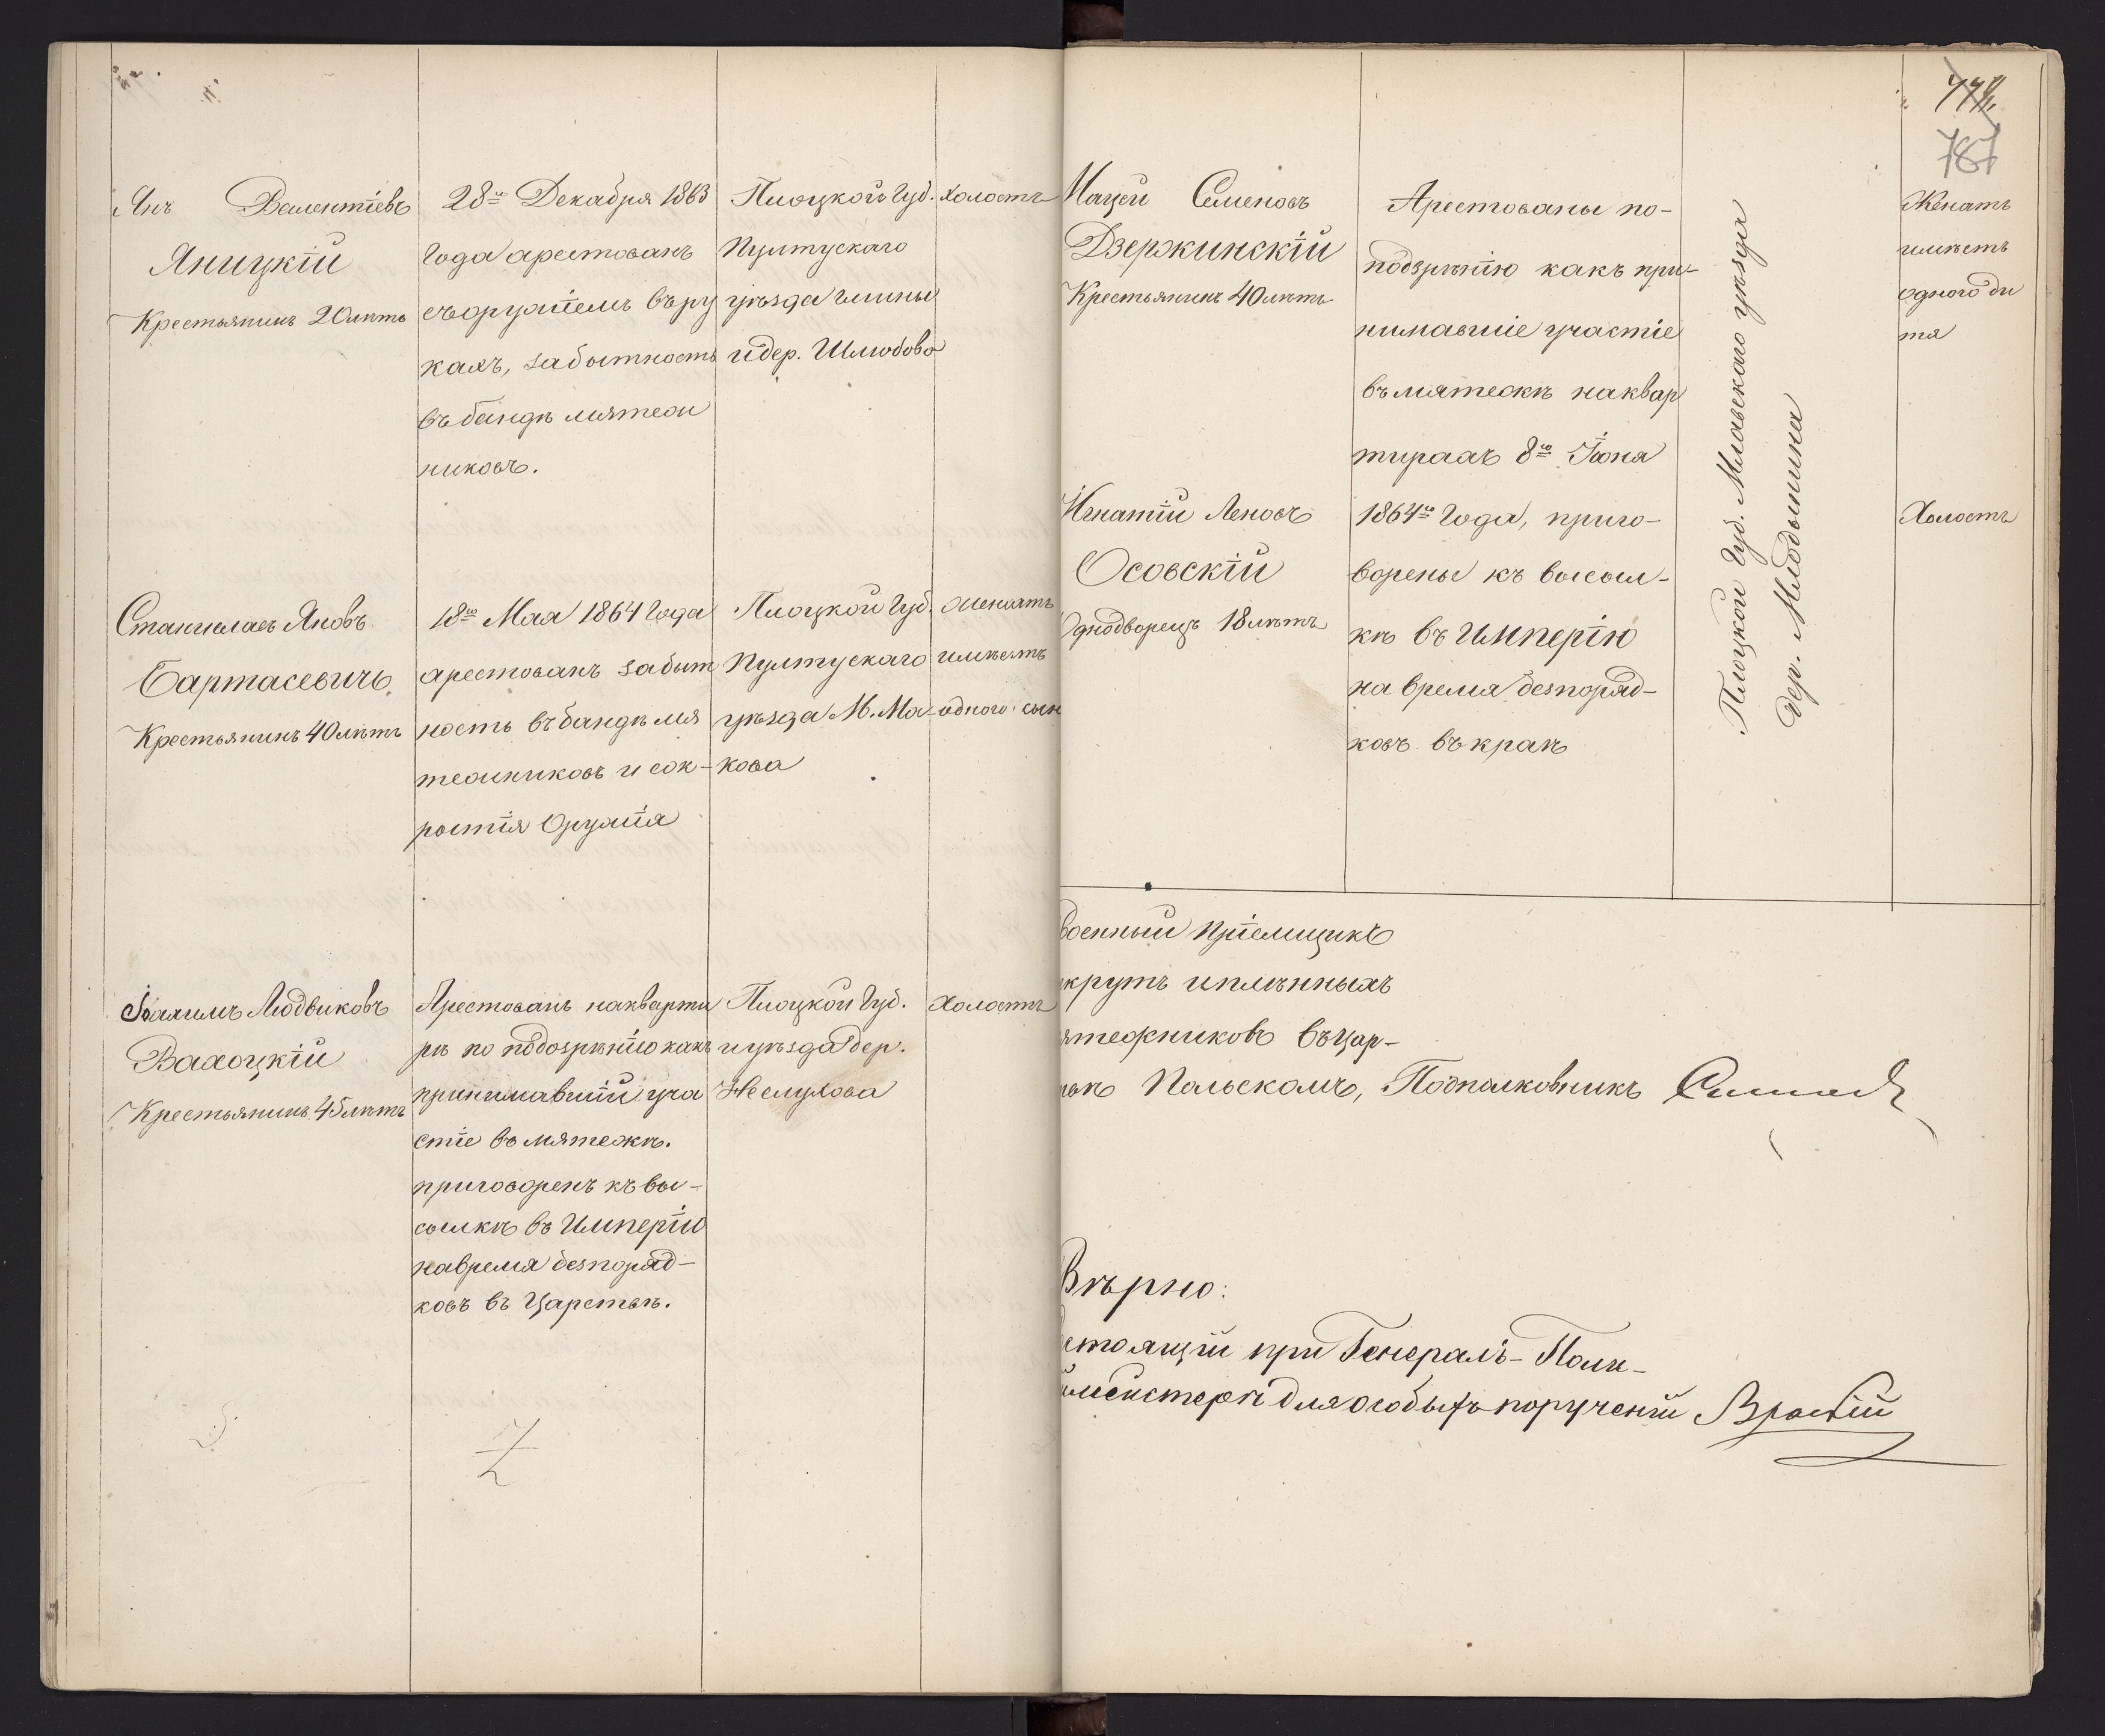 Янъ Валентіевъ
Яницкій
Крестьянинъ 20 лѣтъ
28го Декабря 1863
года арестованъ
съ оружіемъ въ ру
кахъ, за бытность
въ бандѣ мятеж
никовъ.
Плоцкой Губ.
Пултускаго
уѣзда гмины
и дер. Шлюбово
Холостъ
Станиславъ Яновъ
Бартасевичъ
Крестьянинъ 40 лѣтъ
18го Мая 1864 года
арестованъ за быт
ность въ бандѣ мя
тежниковъ и сок-
рытія Оружія
Плоцкой Губ.
Пултускаго
уѣзда М. Ма-
кова
женатъ
имѣетъ
одного сын
Іоахимъ Людвиковъ
Вахоцкій
Крестьянинъ 45 лѣтъ
Арестованъ на кварти
рѣ по подозрѣнію какъ
принимавшій уча
стіе въ мятежѣ.
приговоренъ къ вы-
сылкѣ въ Имперію
на время безпоряд-
ковъ въ Царствѣ.
Плоцкой Губ.
и уѣзда дер.
Неслухова
Холостъ
778
787
Мацей Семеновъ
Дзержинскій
Крестьянинъ 40 лѣтъ
Игнатій Леновъ
Осовскій
Однодворецъ 18 лѣтъ
Арестованы по-
подозрѣнію какъ при-
нимавшіе участіе
въ мятежѣ на квар
тирахъ 8го Іюня
1864го года, приго-
ворены къ высыл-
кѣ въ Имперію
на время безпоряд-
ковъ въ краѣ
Плоцкой Губ. Млавскаго уѣзда
дер. Млодынина
Женатъ
имѣетъ
одного ди
тя
Холостъ
Военный Пріемщикъ
крутъ и плѣнныхъ
ятежниковъ въ Цар-
вѣ Польскомъ, Подполковникъ
Вѣрно:
стоящій при Генералъ-Поли-
мейстерѣ для особыхъ порученій